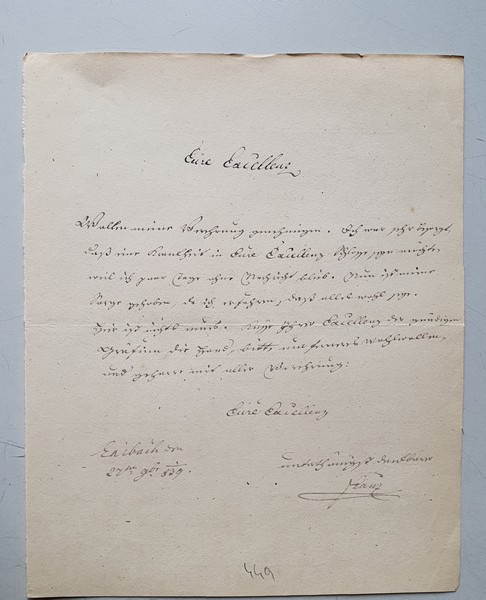 Eure Excellenz
Wollen meine Verehrung genehmigen. Ich war sehr besorgt,
daß eine Krankheit in Eure Excellenz Schlosse seyn möchte,
weil ich paar Tage ohne Nachricht blieb. Nun ist meine
Sorge gehoben, da ich erfahren, daß alles wohl sey.
Hier ist nichts neues. Küsse Ihrer Excellenz der gnädigen
Gräfinn die Hand, bitte um ferneres Wohlwollen,
und geharre mit aller Verehrung:
Eure Excellenz
Laibach den
27ten 9br 839.
unterthänigst dankbarer
Franz
449